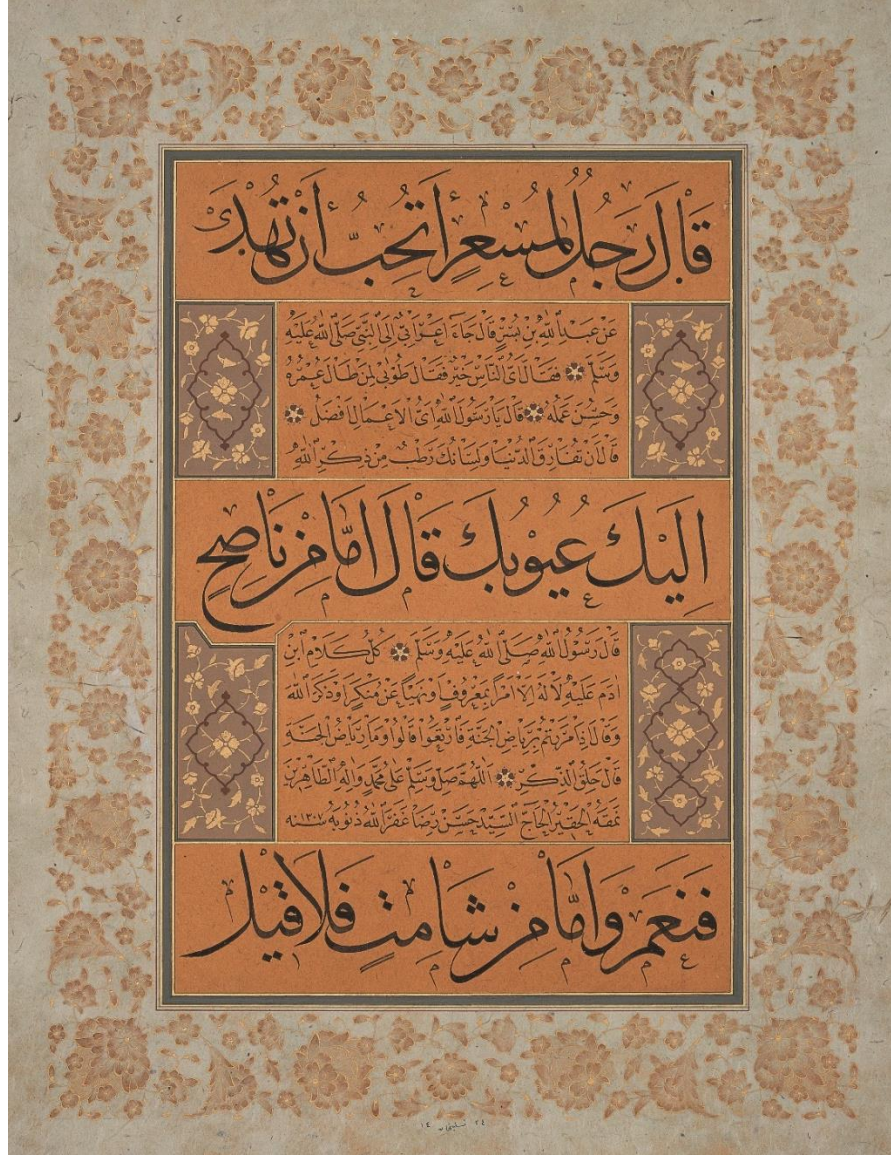 قَالَ رَجُلٌ لِمُسْعِرٍ أَتُحِبُّ أَنْ تُهْدَىٰ
عَنْ عَبْدِ اللّٰهِ بْنِ بُسْرٍ قَالَ جَاءَ اَعْرَابِيٌّ اِلَى النَّبِيِّ صَلَّى اللّٰهُ عَلَيْهِ
وَسَلَّمَ فَقَالَ اَىُّ النَّاسِ خَيْرٌ فَقَالَ طُوبٰى لِمَنْ طَالَ عُمْرُهُ
وَحَسُنَ عَمَلُهُ قَالَ يَا رَسُولَ اللّٰهِ اَىُّ الْاَعْمَالِ اَفْضَلُ
قَالَ اَنْ تُفَارِقَ الدُّنْيَا وَلِسَانُكَ رَطْبٌ مِنْ ذِكْرِ اللّٰهِ
اِلَيْكَ عُيُوبُكَ قَالَ اَمَّا مِنْ نَاصِحٍ
قَالَ رَسُولُ اللّٰهِ صَلَّى اللّٰهُ عَلَيْهِ وَسَلَّمَ كُلُّ كَلَامِ ابْنِ
اٰدَمَ عَلَيْهِ لَا لَهُ اِلَّا اَمْرًا بِمَعْرُوفٍ اَوْ نَهْيًا عَنْ مُنْكَرٍ اَوْ ذِكْرَ اللّٰهِ
وَقَالَ اِذَا مَرَرْتُمْ بِرِيَاضِ الْجَنَّةِ فَارْتَعُوا قَالُوا وَمَا رِيَاضُ الْجَنَّةِ
قَالَ حَلَقُ الذِّكْرِ اَللّٰهُمَّ صَلِّ وَسَلِّمْ عَلٰى مُحَمَّدٍ وَاٰلِهِ الطَّاهِرِينَ
نَمَقَهُ الْحَقِيرُ الْحَاجُّ السَّيِّدُ حَسَنْ رِضَا غَفَرَ اللّٰهُ ذُنُوبَهُ سَنَه ١٣٠٧
فَنَعَمْ وَاَمَّا مِنْ شَامِتٍ فَلَا قِيلَ